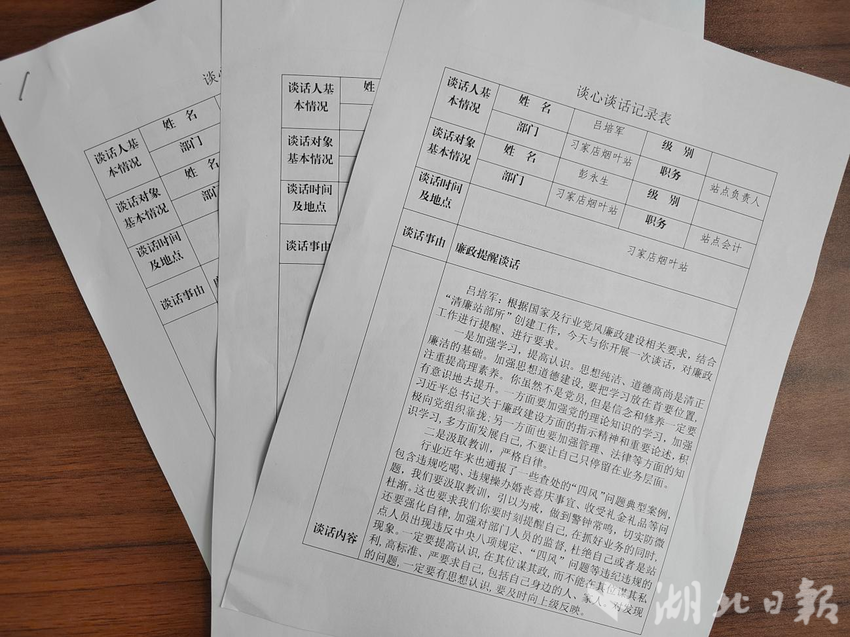 谈心
谈话人基
本情况
姓 名
部门
谈话对象
基本情况
姓 名
部门
谈话时间
及地点
谈话事由
谈话人基
本情况
姓
谈话对象
基本情况
谈话时间
及地点
谈话事由
谈心谈话记录表
谈话人基
本情况
姓 名
吕培军
级 别
部门
习家店烟叶站
职务
站点负责人
谈话对象
基本情况
姓 名
彭永生
级 别
部门
习家店烟叶站
职务
站点会计
谈话时间
及地点
习家店烟叶站
谈话事由
廉政提醒谈话
谈话内容
吕培军：根据国家及行业党风廉政建设相关要求，结合
“清廉站部所”创建工作，今天与你开展一次谈话，对廉政
工作进行提醒、进行要求。
一是加强学习，提高认识。思想纯洁、道德高尚是清正
廉洁的基础。加强思想道德建设，要把学习放在首要位置，
注重提高理素养。你虽然不是党员，但是信念和修养一定要
有意识地去提升。一方面要加强党的理论知识的学习，加强
习近平总书记关于廉政建设方面的指示精神和重要论述，积
极向党组织靠拢。另一方面也要加强管理、法律等方面的知
识学习，多方面发展自己，不要让自己只停留在业务层面。
二是汲取教训，严格自律。
行业近年来也通报了一些查处的“四风”问题典型案例，
包含违规吃喝、违规操办婚丧喜庆事宜、收受礼金礼品等问
题，我们要汲取教训，引以为戒，做到警钟常鸣，切实防微
杜渐。这也要求我们你要时刻提醒自己，在抓好业务的同时，
还要强化自律，加强对部门人员的监督，杜绝自己或者是站
点人员出现违反中央八项规定、“四风”问题等违纪违规的
现象。一定要提高认识，在其位谋其政，而不能在其位谋其私
利，高标准、严要求自己，包括自己身边的人、家人，有发现
的问题，一定要有思想认识，要及时向上级反映。
湖北日报